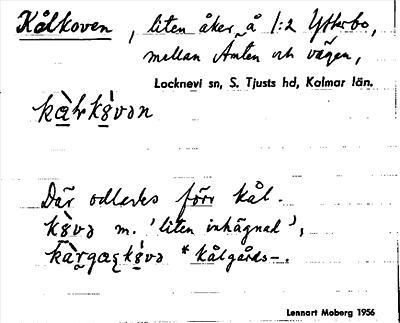 Kålkoven, liten åker å 1:2 Ytterbo,
mellan Åmten och vägen,
Locknevi sn, S. Tjusts hd, Kalmar län.
Där odlades förr kål.
m. 'liten inhägnad',
*kålgårds-.
Lennart Moberg 1956